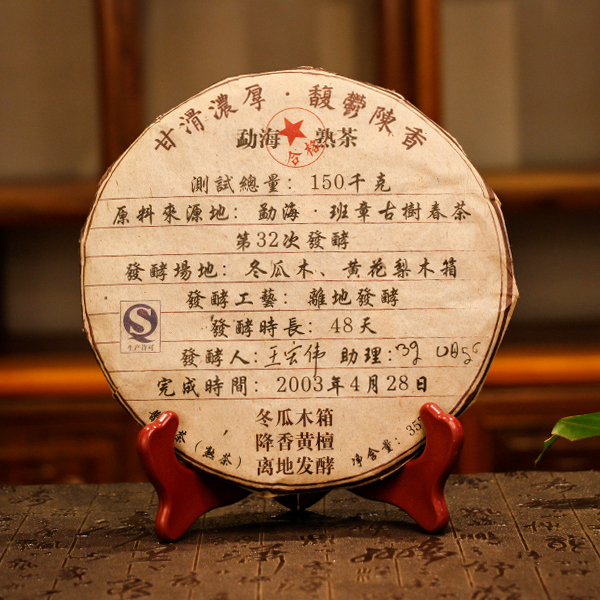 甘滑濃厚·馥鬱陳香
勐海 熟茶
合格
測試總量：150千克
原料來源地：勐海·班章古樹春茶
第32次發酵
發酵場地：冬瓜木、黄花梨木箱
發酵工藝：離地發酵
S
生产许可
發酵時長：48天
發酵人：王宏伟 助理：
完成時間：2003年4月28日
冬瓜木箱
降香黄檀
离地发酵
茶（熟茶）
净含量：35